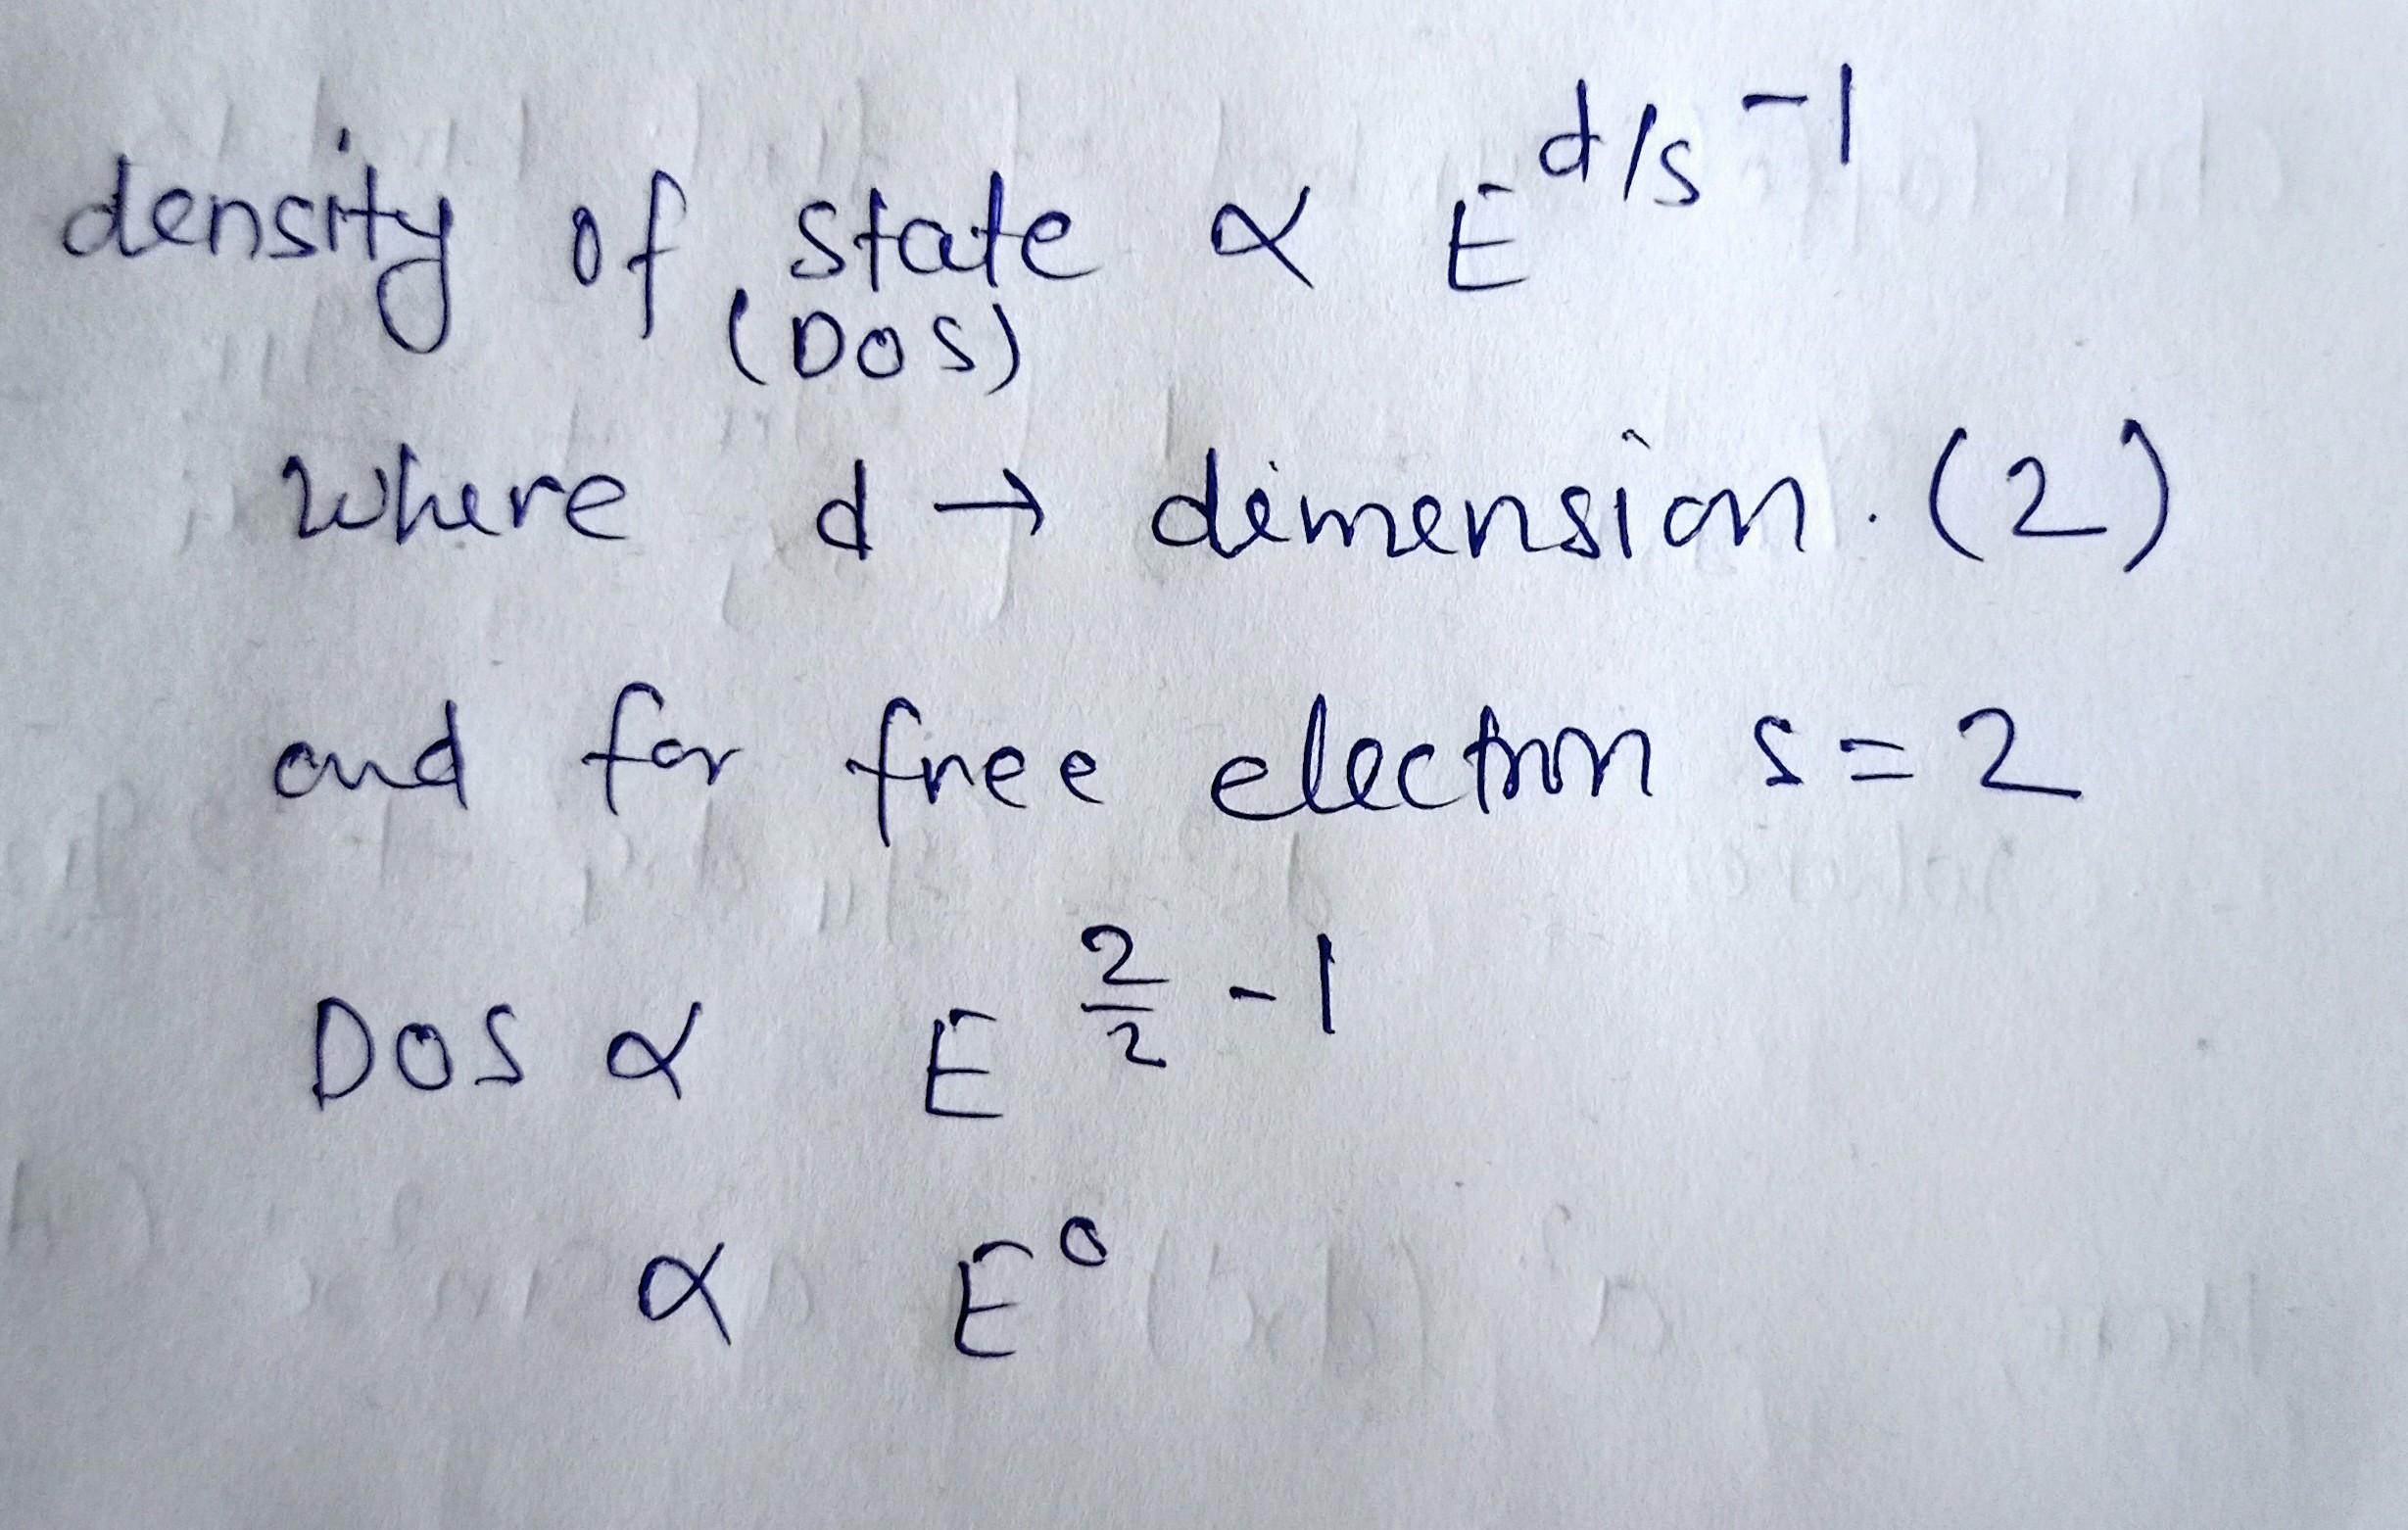 density of state ∝ E^{d/s -1}
(DOS)
where d → dimension. (2)
and for free electron s = 2
DOS ∝ E^{2/2 -1}
∝ E^0